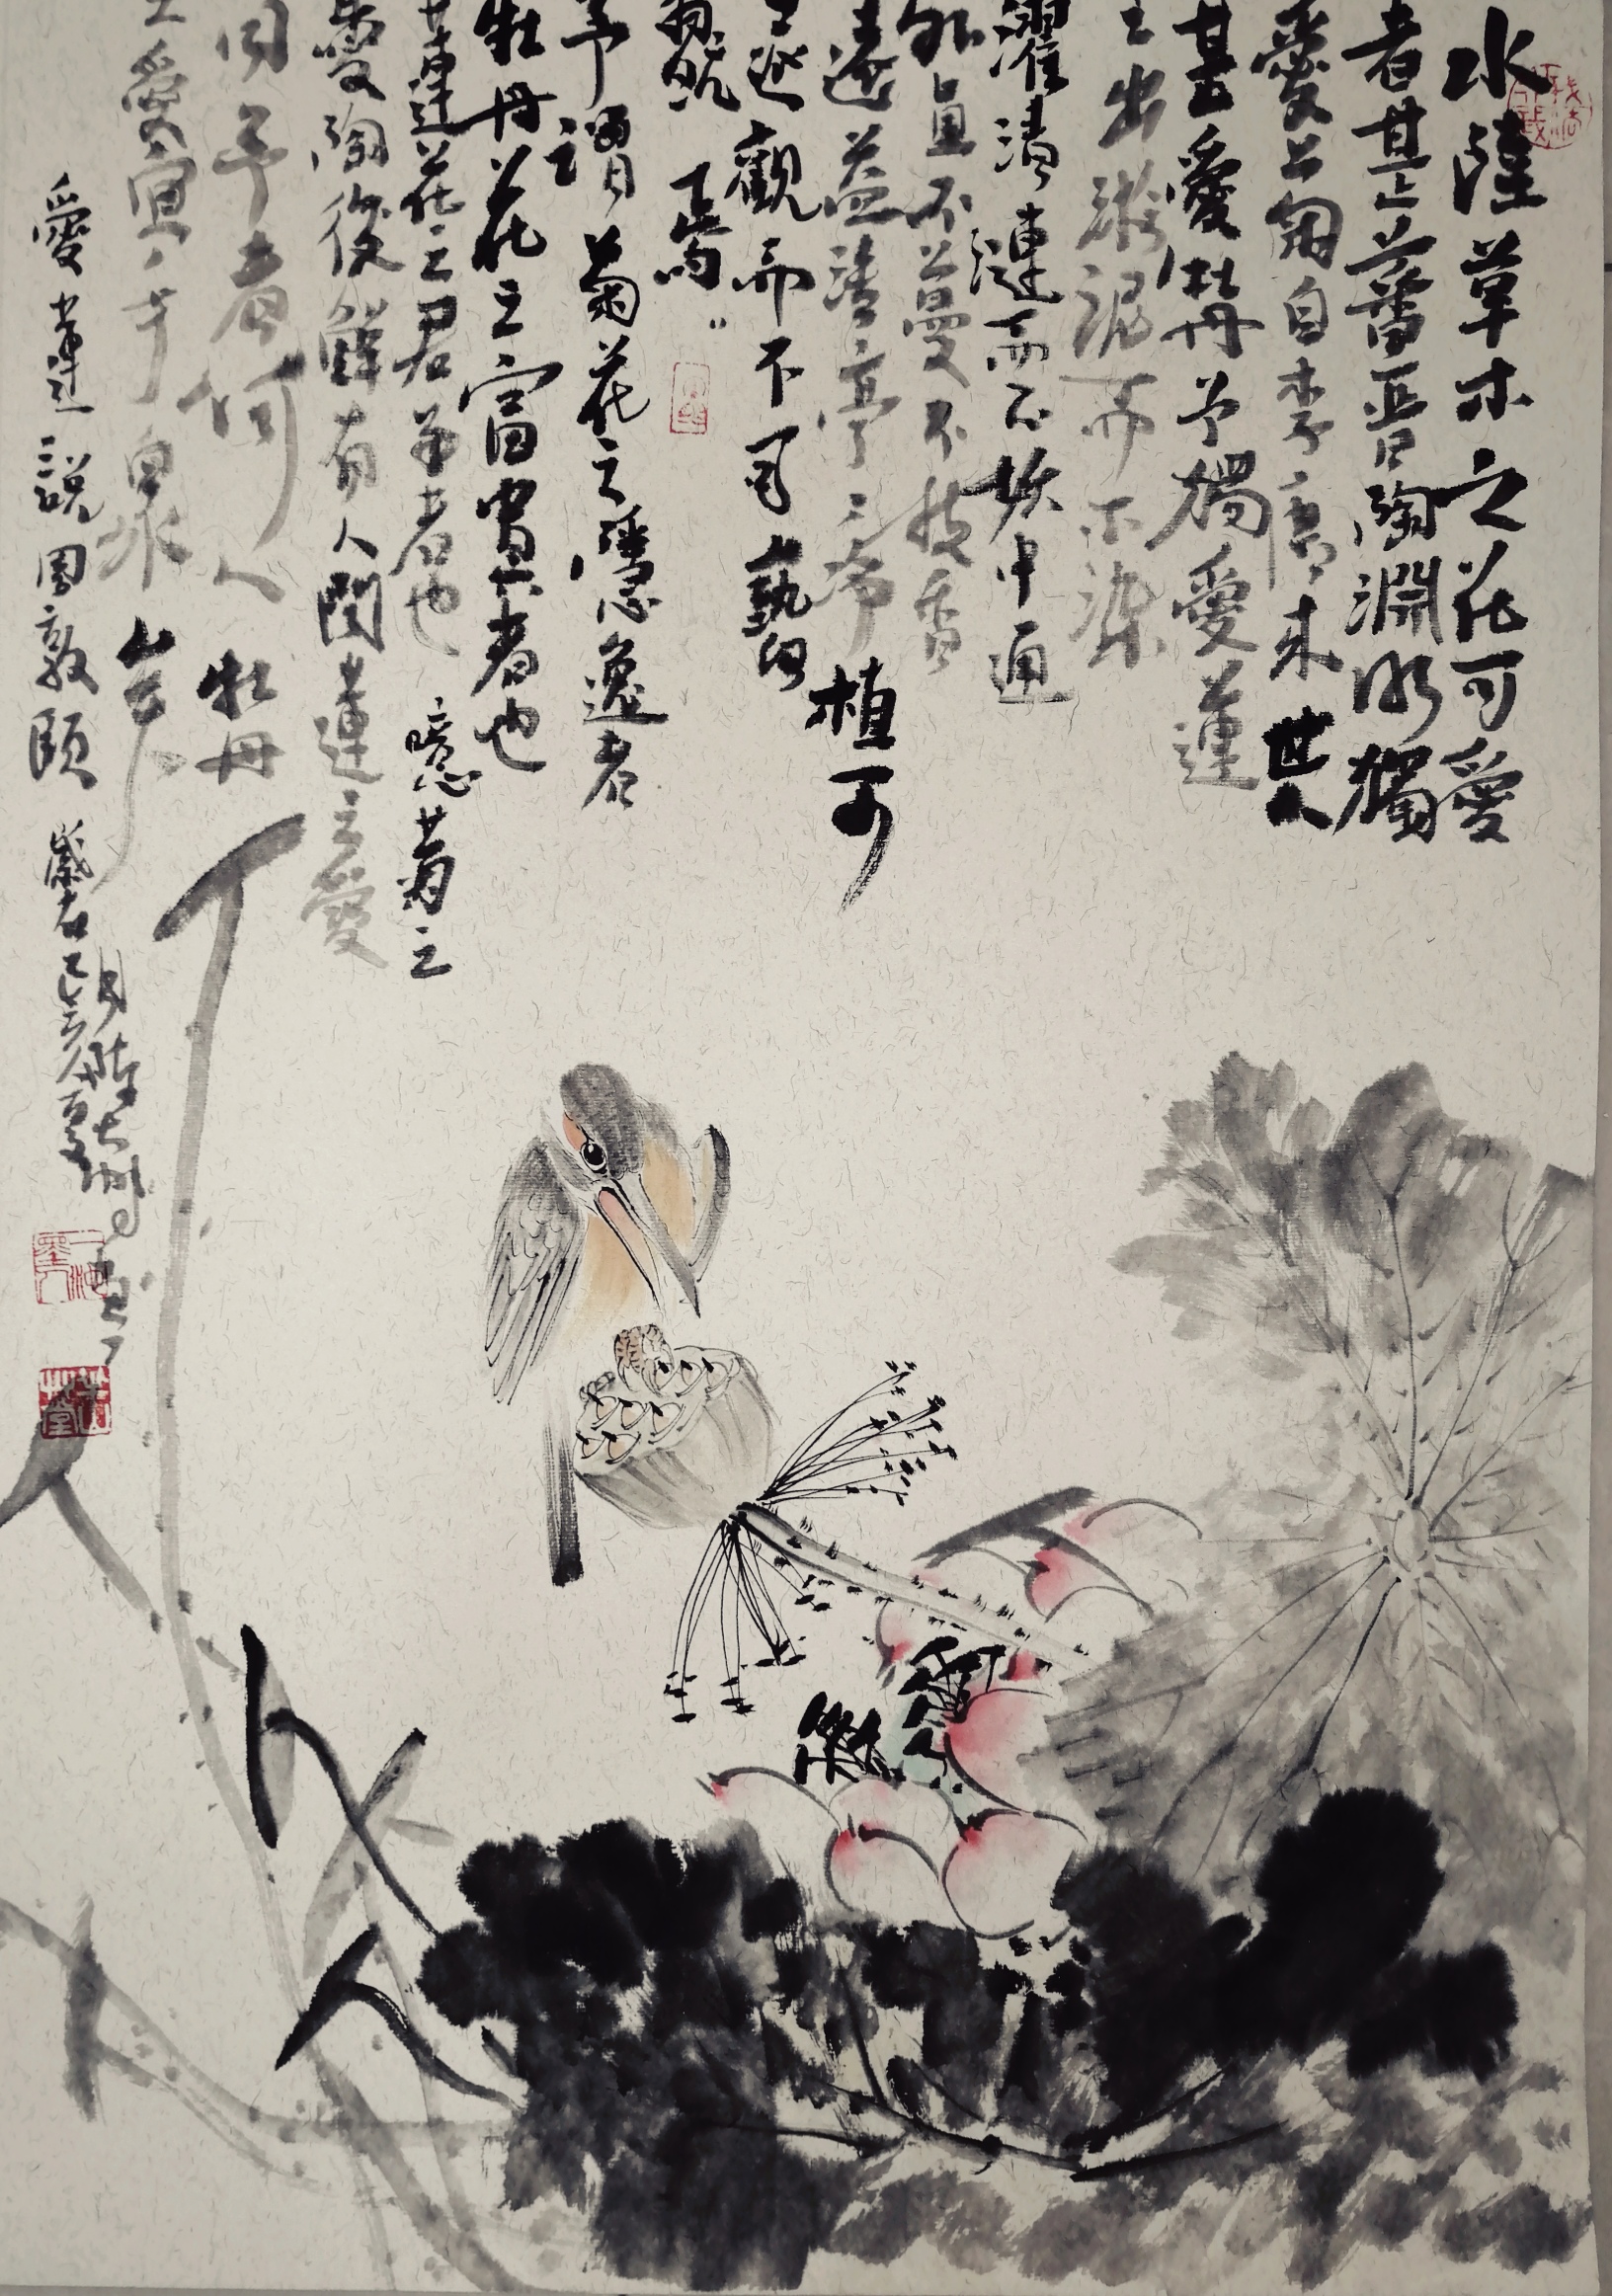 水陸草木之花可愛
者甚蕃晉陶淵明獨
愛菊自李唐来世人
甚愛牡丹予獨愛蓮
之出淤泥而不染
濯清漣而不妖中通
外直不蔓不枝香
遠益清亭亭净植可
遠觀而不可褻
翫焉
予謂菊花之隱逸者
牡丹花之富貴者也
蓮花之君子者也噫菊之
愛陶後鮮有聞蓮之愛
同予者何人牡丹
之愛宜乎衆矣
愛蓮説周敦頤歲在己亥